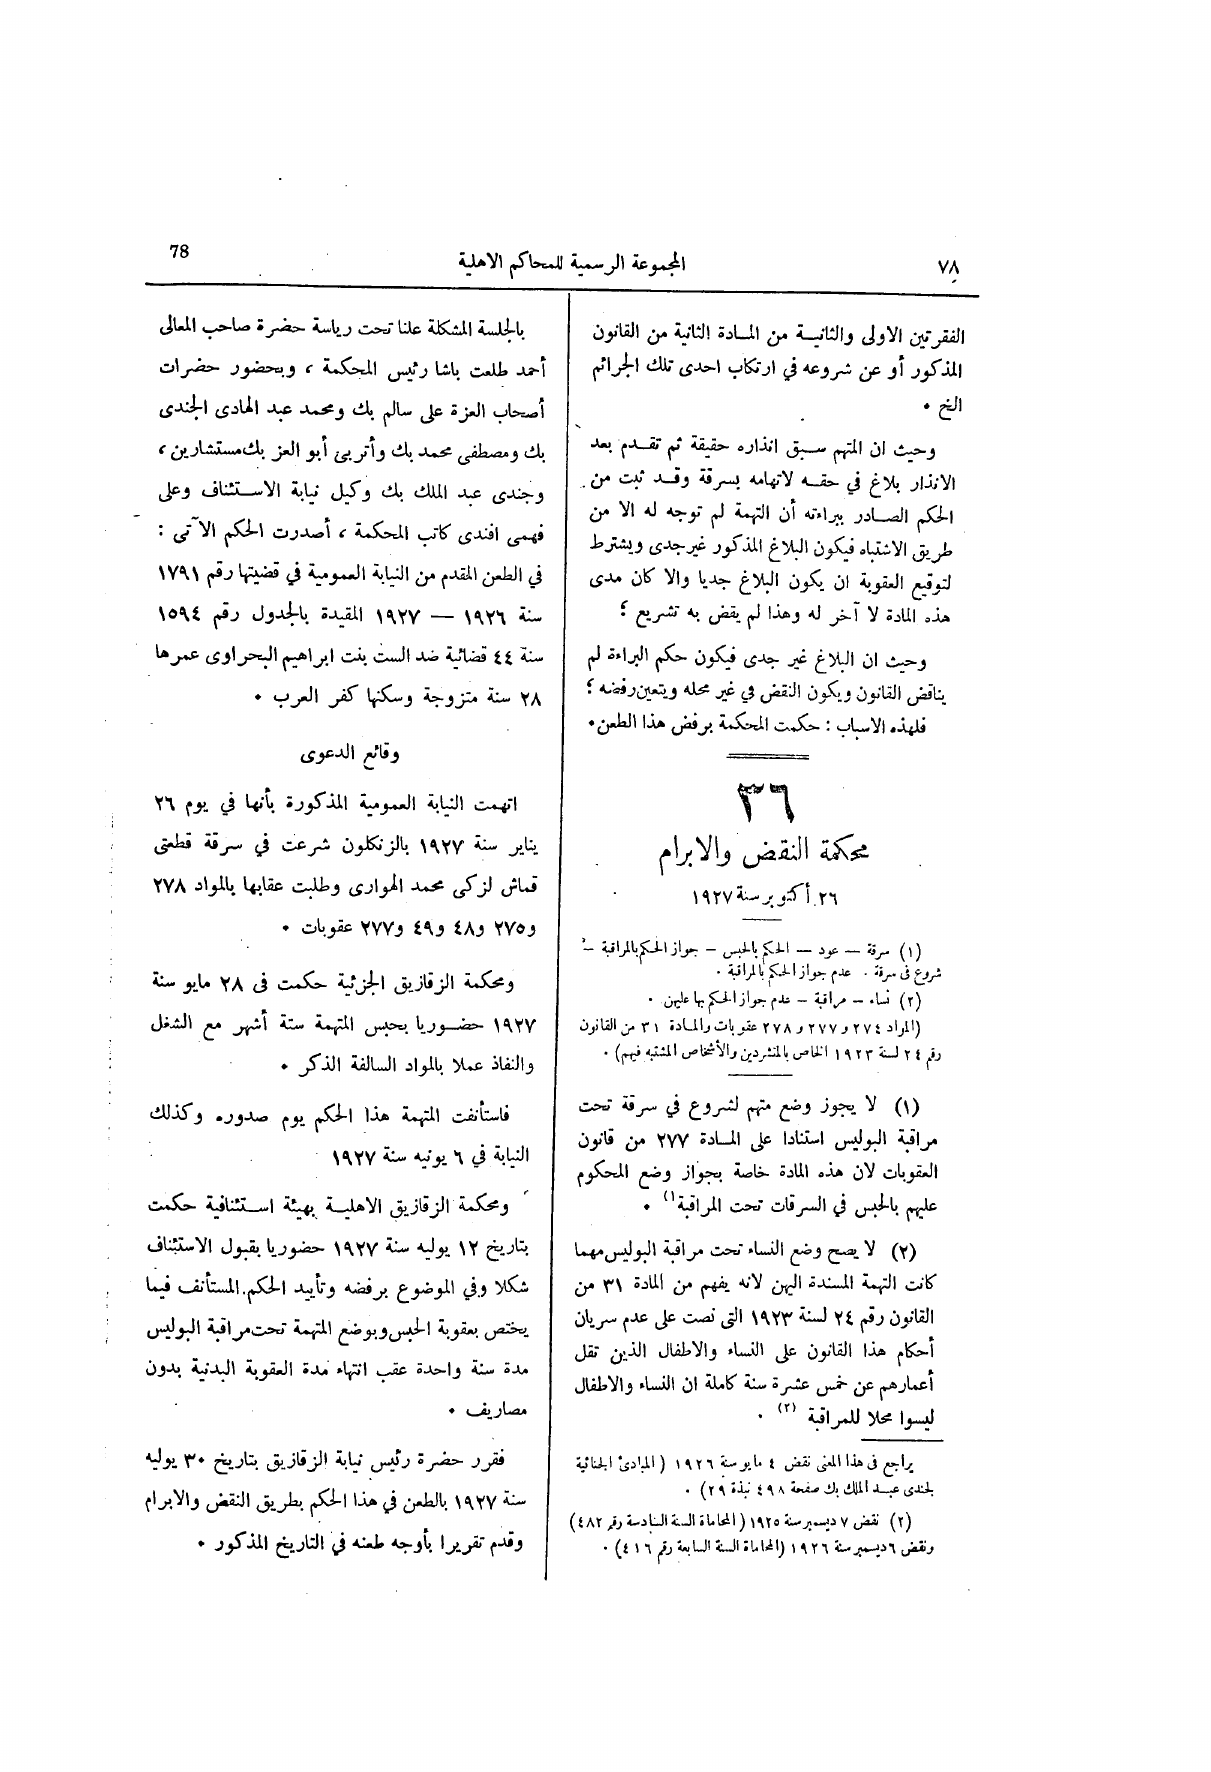 ٧٨
المجموعة الرسمية للمحاكم الاهلية
78
الفقرتين الاولى والثانيــة من المــادة الثانية من القانون
المذكور أو عن شروعه في ارتكاب احدى تلك الجرائم
الخ .
وحيث ان المتهم سبق انذاره حقيقة ثم تقدم بعد
الانذار بلاغ في حقــه لاتهامه بسرقة وقــد ثبت من
الحكم الصــادر ببراءته أن التهمة لم توجه له الا من
طريق الاشتباه فيكون البلاغ المذكور غير جدى ويشترط
لتوقيع العقوبة ان يكون البلاغ جديا والا كان مدى
هذه المادة لا آخر له وهذا لم يقض به تشريع ؛
وحيث ان البلاغ غير جدى فيكون حكم البراءة لم
يناقض القانون ويكون النقض في غير محله ويتعين رفضه ؛
فلهذه الاسباب : حكمت المحكمة برفض هذا الطعن .
٣٦
محكمة النقض والابرام
٢٦ أكتوبر سنة ١٩٢٧
(١) سرقة — عود — الحكم بالحبس — جواز الحكم بالمراقبة —
شروع فى سرقة . عدم جواز الحكم بالمراقبة .
(٢) نساء — مراقبة — عدم جواز الحكم بها عليهن .
(المواد ٢٧٤ و ٢٧٧ و ٢٧٨ عقوبات والمــادة ٣١ من القانون
رقم ٢٤ لسنة ١٩٢٣ الخاص بالمتشردين والأشخاص المشتبه فيهم) .
(١) لا يجوز وضع متهم لشروع في سرقة تحت
مراقبة البوليس استنادا على المــادة ٢٧٧ من قانون
العقوبات لان هذه المادة خاصة بجواز وضع المحكوم
عليهم بالحبس في السرقات تحت المراقبة (١) .
(٢) لا يصح وضع النساء تحت مراقبة البوليس مهما
كانت التهمة المسندة اليهن لانه يفهم من المادة ٣١ من
القانون رقم ٢٤ لسنة ١٩٢٣ التى نصت على عدم سريان
أحكام هذا القانون على النساء والاطفال الذين تقل
أعمارهم عن خمس عشرة سنة كاملة ان النساء والاطفال
ليسوا محلا للمراقبة (٢) .
يراجع فى هذا المعنى نقض ٤ مايو سنة ١٩٢٦ (المبادئ الجنائية
لجندى عبــد الملك بك صفحة ٤٩٨ نبذة ٢٩) .
(٢) نقض ٧ ديسمبر سنة ١٩٢٥ (المحاماة السنة السادسة رقم ٤٨٢)
ونقض ٦ ديسمبر سنة ١٩٢٦ (المحاماة السنة السابعة رقم ٤١٦) .
بالجلسة المشكلة علنا تحت رياسة حضرة صاحب المعالى
أحمد طلعت باشا رئيس المحكمة ، وبحضور حضرات
أصحاب العزة على سالم بك ومحمد عبد الهادى الجندى
بك ومصطفى محمد بك وأتربى أبو العز بك مستشارين ،
وجندى عبد الملك بك وكيل نيابة الاستئناف وعلى
فهمى افندى كاتب المحكمة ، أصدرت الحكم الآتى :
في الطعن المقدم من النيابة العمومية في قضيتها رقم ١٧٩١
سنة ١٩٢٦ — ١٩٢٧ المقيدة بالجدول رقم ١٥٩٤
سنة ٤٤ قضائية ضد الست بنت ابراهيم البحراوى عمرها
٢٨ سنة متزوجة وسكنها كفر العرب .
وقائع الدعوى
اتهمت النيابة العمومية المذكورة بأنها في يوم ٢٦
يناير سنة ١٩٢٧ بالزنكلون شرعت في سرقة قطعتى
قماش لزكى محمد الهوارى وطلبت عقابها بالمواد ٢٧٨
و٢٧٥ و٤٨ و٤٩ و٢٧٧ عقوبات .
ومحكمة الزقازيق الجزئية حكمت فى ٢٨ مايو سنة
١٩٢٧ حضوريا بحبس المتهمة ستة أشهر مع الشغل
والنفاذ عملا بالمواد السالفة الذكر .
فاستأنفت المتهمة هذا الحكم يوم صدوره وكذلك
النيابة في ٦ يونيه سنة ١٩٢٧
ومحكمة الزقازيق الاهليــة بهيئة استئنافية حكمت
بتاريخ ١٢ يوليه سنة ١٩٢٧ حضوريا بقبول الاستئناف
شكلا وفي الموضوع برفضه وتأييد الحكم المستأنف فيما
يختص بعقوبة الحبس وبوضع المتهمة تحت مراقبة البوليس
مدة سنة واحدة عقب انتهاء مدة العقوبة البدنية بدون
مصاريف .
فقرر حضرة رئيس نيابة الزقازيق بتاريخ ٣٠ يوليه
سنة ١٩٢٧ بالطعن في هذا الحكم بطريق النقض والابرام
وقدم تقريرا بأوجه طعنه في التاريخ المذكور .